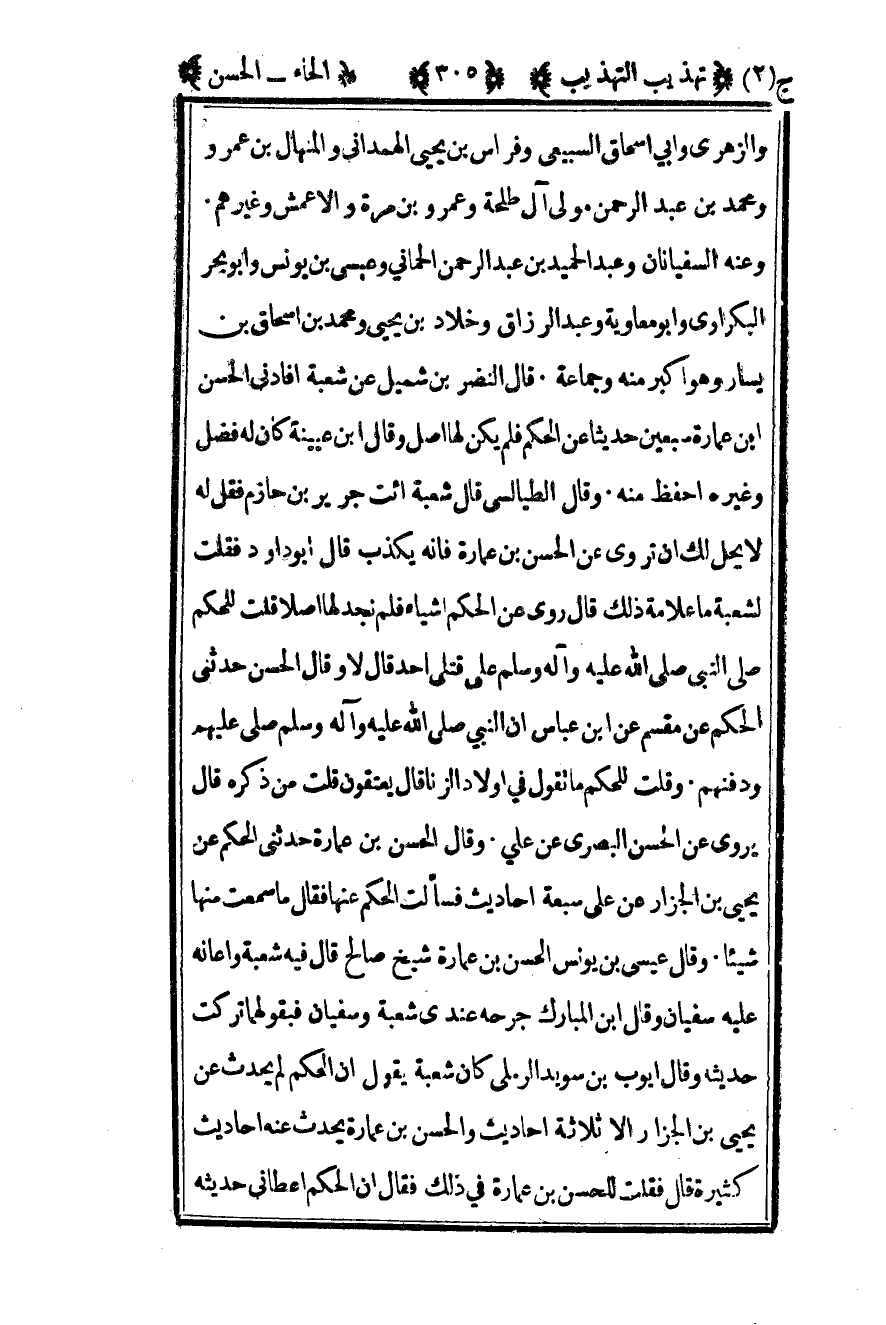 ج(٢) ﴿ تهذيب التهذيب ﴾ ﴿ ٣٠٥ ﴾ ﴿ الحاء ـ الحسن ﴾
والزهرى وابي اسحاق السبيعى وفراس بن يحيى الهمدانى والمنهال بن عمرو
ومحمد بن عبد الرحمن٠ولى آل طلحة وعمرو بن مرة والاعمش وغيرهم٠
وعنه السفيانان وعبدالحميد بن عبدالرحمن الحمانى وعيسى بن يونس وابوبحر
البكراوى وابومعاوية وعبدالرزاق وخلاد بن يحيى ومحمد بن اسحاق بن
يسار وهو اكبر منه وجماعة ٠ قال النضر بن شميل عن شعبة افادنى الحسن
ابن عمارة سبعين حديثا عن الحكم فلم يكن لها اصل وقال ابن عيينة كان له فضل
وغيره احفظ منه ٠ وقال الطيالسى قال شعبة ائت جرير بن حازم فقل له
لا يحل لك ان تروى عن الحسن بن عمارة فانه يكذب قال ابوداود فقلت
لشعبة ما علامة ذلك قال روى عن الحكم اشياء فلم نجد لها اصلا قلت للحكم
صلى النبي صلى الله عليه وآله وسلم على قتلى احد قال لا وقال الحسن حدثنى
الحكم عن مقسم عن ابن عباس ان النبي صلى الله عليه وآله وسلم صلى عليهم
ودفنهم ٠ وقلت للحكم ما تقول في اولاد الزنا قال يعتقون قلت من ذكره قال
يروى عن الحسن البصرى عن علي ٠ وقال الحسن بن عمارة حدثنى الحكم عن
يحيى بن الجزار عن على سبعة احاديث فسألت الحكم عنها فقال ما سمعت منها
شيئا ٠ وقال عيسى بن يونس الحسن بن عمارة شيخ صالح قال فيه شعبة واعانه
عليه سفيان وقال ابن المبارك جرحه عندى شعبة وسفيان فبقولهما تركت
حديثه وقال ايوب بن سويد الرملى كان شعبة يقول ان الحكم لم يحدث عن
يحيى بن الجزار الا ثلاثة احاديث والحسن بن عمارة يحدث عنه احاديث
كثيرة قال فقلت للحسن بن عمارة في ذلك فقال ان الحكم اعطانى حديثه